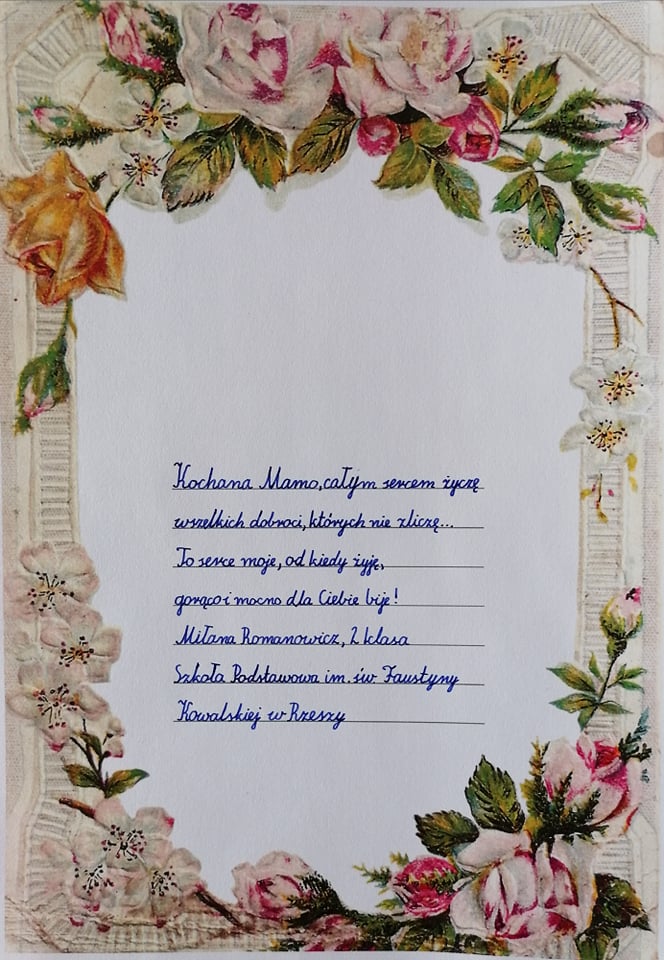 Kochana Mamo, całym sercem życzę
wszelkich dobroci, których nie zliczę...
To serce moje, od kiedy żyję,
gorąco i mocno dla Ciebie bije!
Miłana Romanowicz, 2 klasa
Szkoła Podstawowa im. św Faustyny
Kowalskiej w Rzeszy